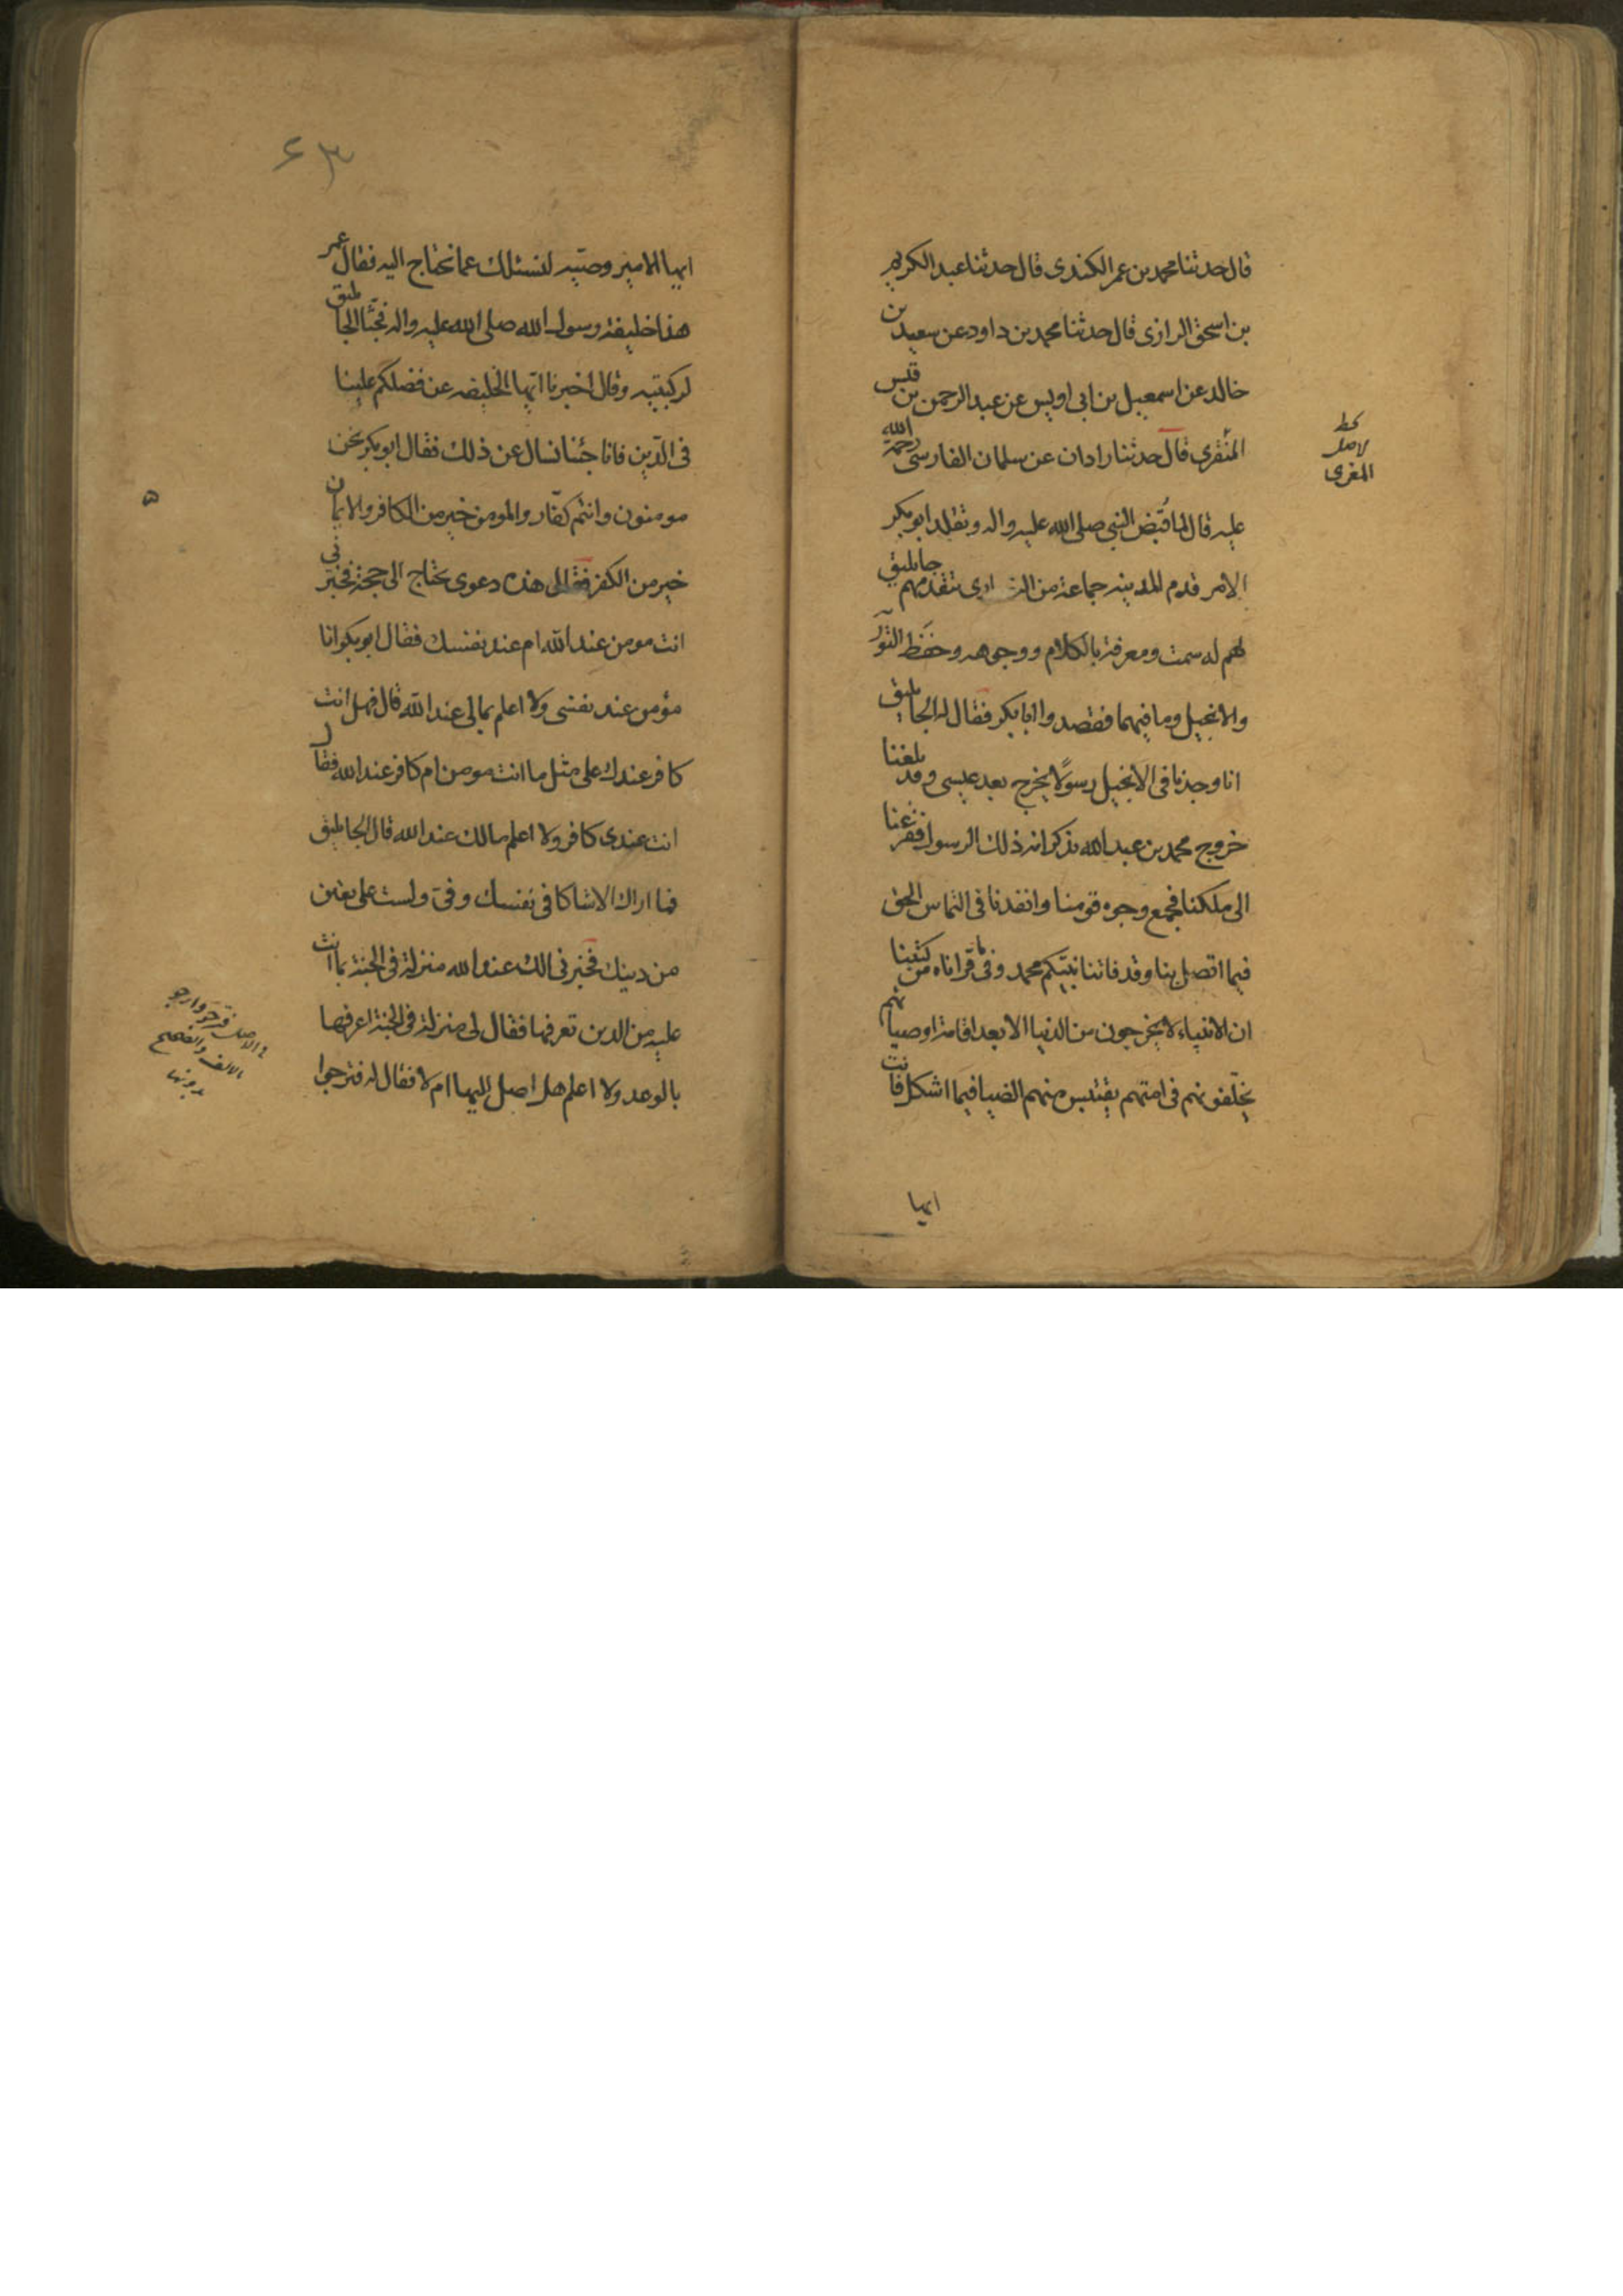 قال حدثنا محمد بن عمر الكندى قال حدثنا عبد الكريم
بن اسحق الرازى قال حدثنا محمد بن داود عن سعيد بن
خالد عن اسمعيل بن ابى اويس عن عبد الرحمن بن قيس
المنقرى قال حدثنا زادان عن سلمان الفارسى رحمة الله
عليه قال لما قبض النبى صلى الله عليه واله وتقلد ابو بكر
الامر قدم المدينه جماعة من النصارى يتقدمهم جاثليق
لهم له سمت ومعرفة بالكلام ووجوهه وحفظ التور
والانجيل وما فيهما فقصدوا ابا بكر فقال له الجاثليق
انا وجدنا فى الانجيل رسولا يخرج بعد عيسى وقد بلغنا
خروج محمد بن عبد الله يذكر انه ذلك الرسول ففزعنا
الى ملكنا فجمع وجوه قومنا وانفذنا فى التماس الحق
فيما اتصل بنا وقد فاتنا نبيكم محمد وفيما قراناه من كتبنا
ان الانبياء لا يخرجون من الدنيا الا بعد اقامة اوصيائهم
يخلفونهم فى امتهم يقتبس منهم الضيا فيما اشكل فانت
ايها
بخط
الاصل
المغرى
۶۳
ايها الامير وصيه لنسئلك عما نحتاج اليه فقال عمر
هذا خليفة رسول الله صلى الله عليه واله فجثا الجاثليق
لركبتيه وقال اخبرنا ايها الخليفه عن فضلكم علينا
فى الدين فانا جئنا نسال عن ذلك فقال ابو بكر نحن
مومنون وانتم كفار والمومن خير من الكافر والايمان
خير من الكفر فقال هذه دعوى يحتاج الى حجة فخبرنى
انت مومن عند الله ام عند نفسك فقال ابو بكر انا
مؤمن عند نفسى ولا اعلم بما لى عند الله قال فهل انت
كافر عندك على مثل ما انت مومن ام كافر عند الله فقال
انت عندى كافر ولا اعلم مالك عند الله قال الجاثليق
فما اراك الا شاكا فى نفسك وفى ولست على يقين
من دينك فخبرنى الك عند الله منزلة فى الجنة بما انت
عليه من الدين تعرفها فقال لى منزلة فى الجنة اعرفها
بالوعد ولا اعلم هل اصل اليها ام لا فقال له فترجوا
فى الاصل فترجوا وارجو
بالالف والصحيح
بدونها